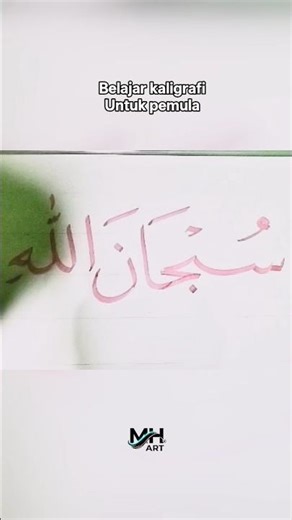 Belajar kaligrafi
Untuk pemula
سُبْحَانَ اللّٰهِ
MH
ART